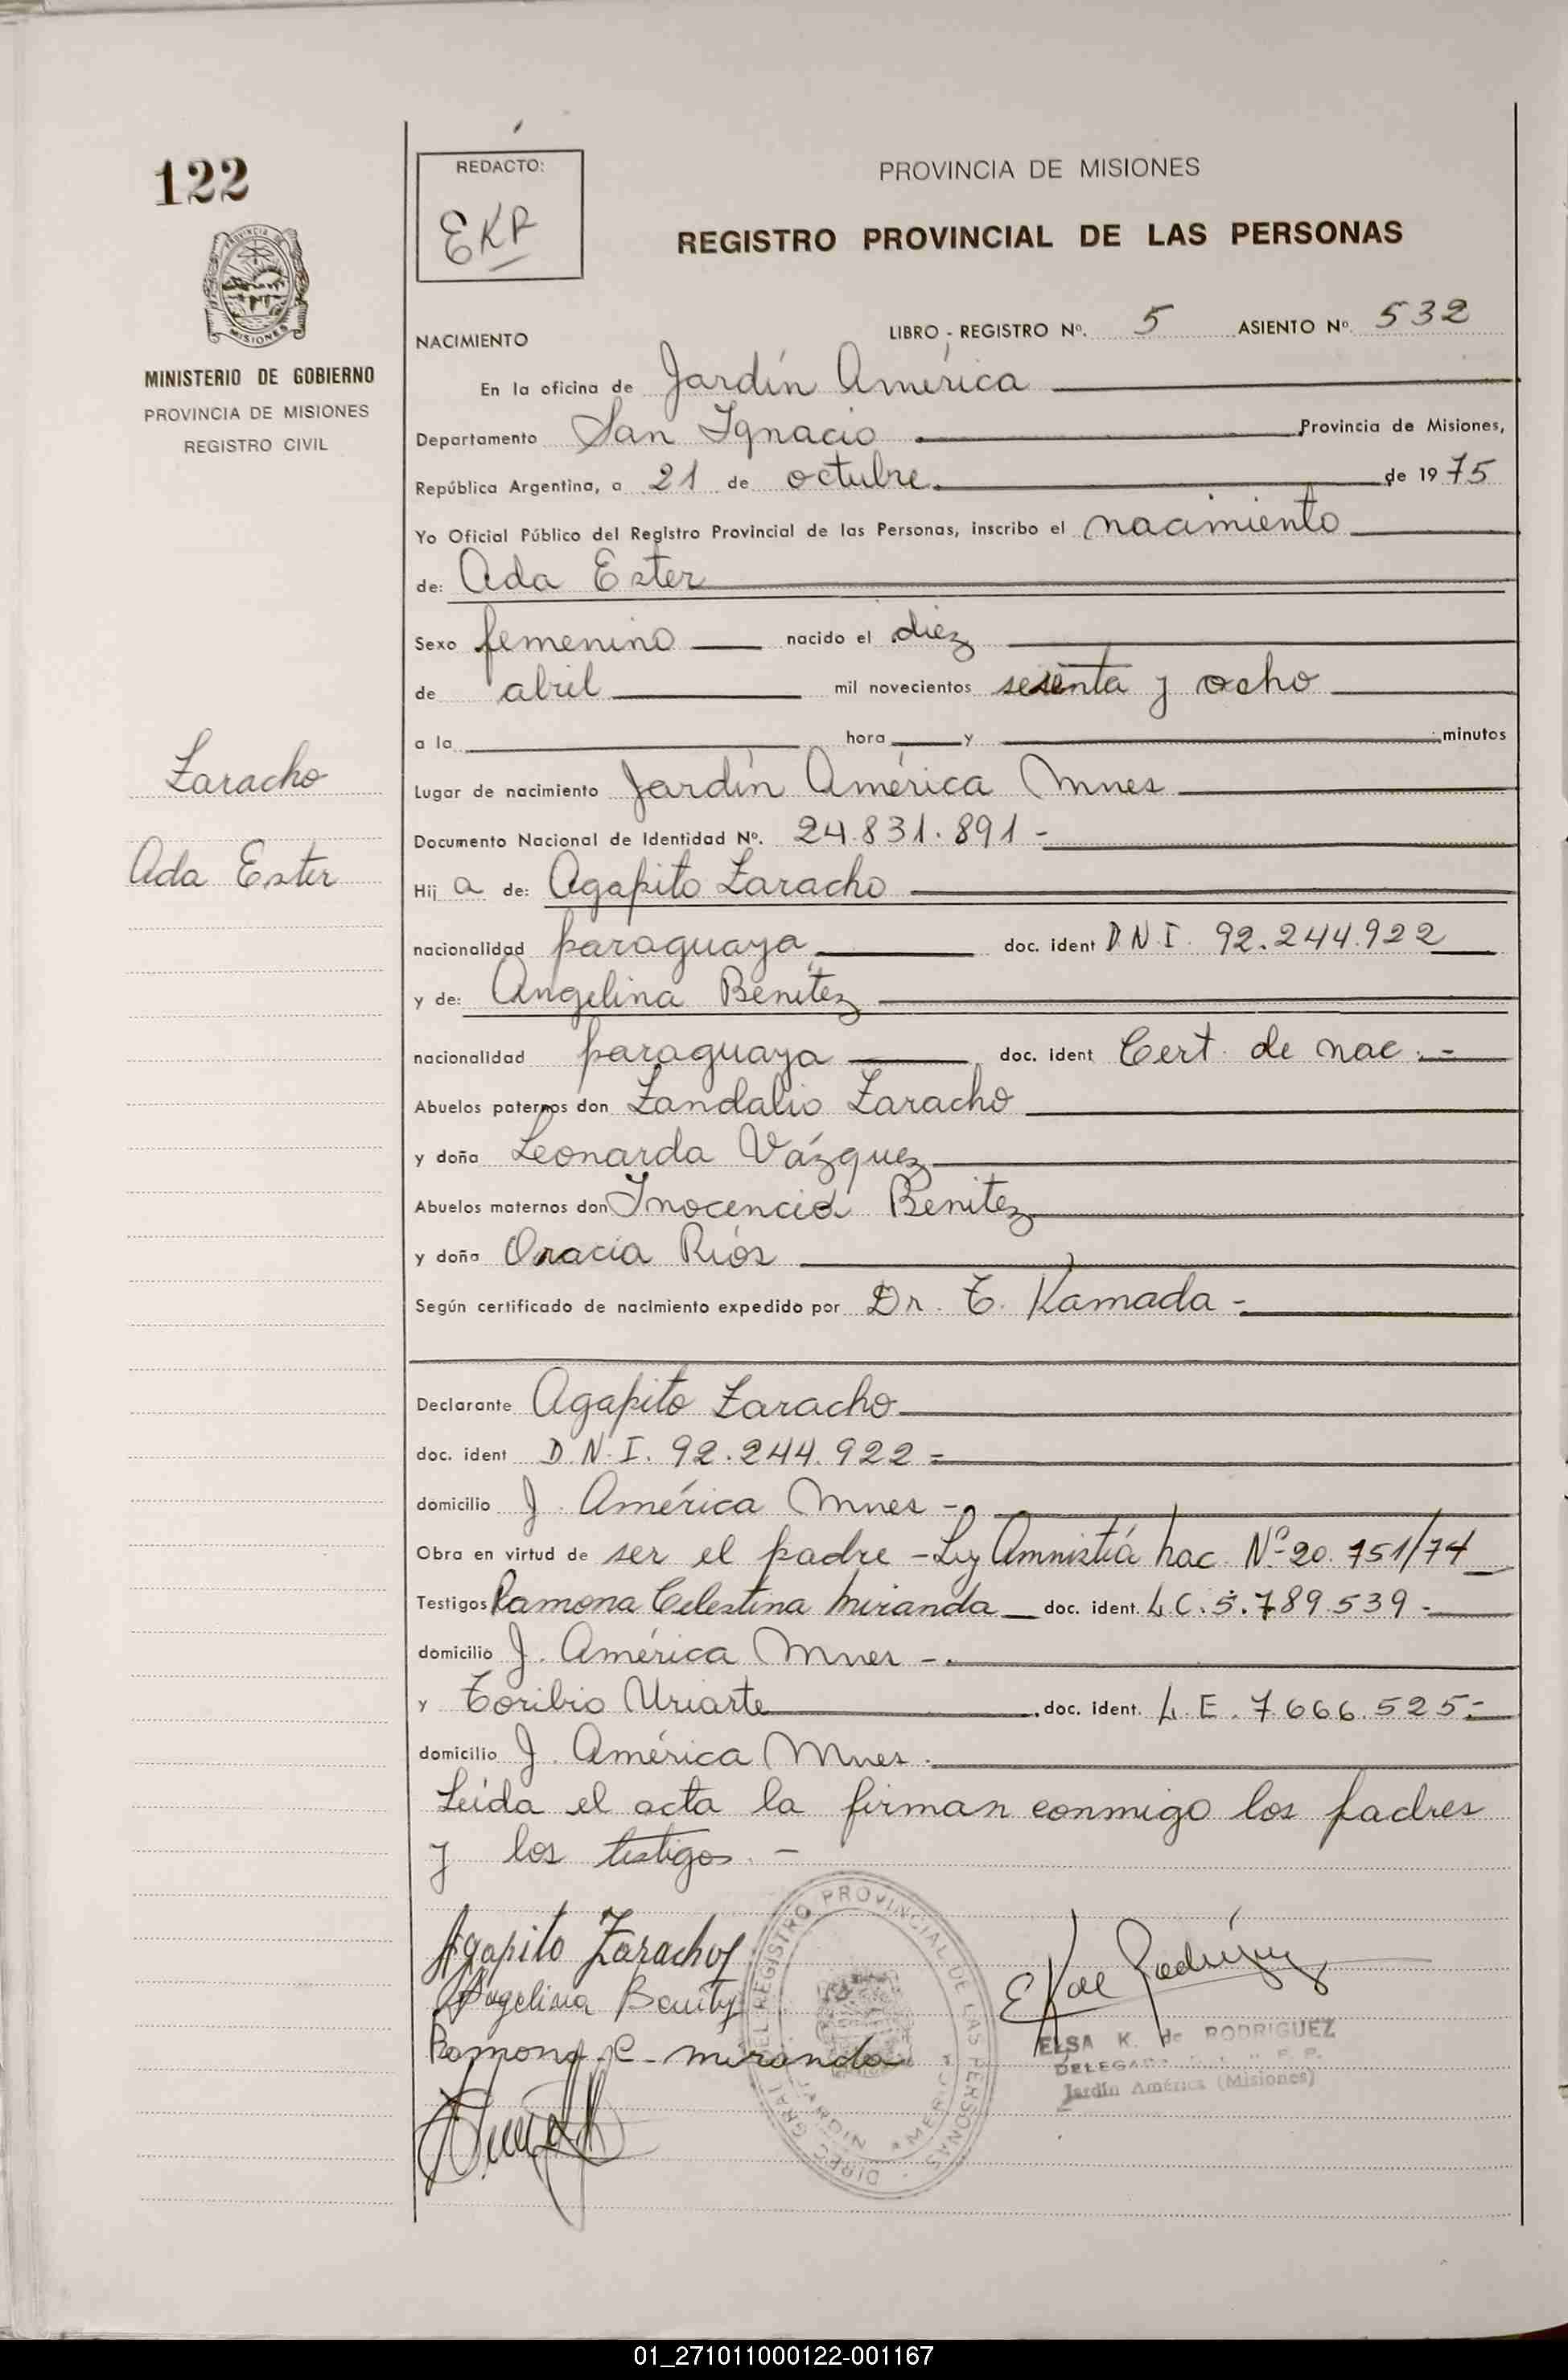 122
REDACTO:
EKR
PROVINCIA DE MISIONES
REGISTRO PROVINCIAL DE LAS PERSONAS
PROVINCIA
MISIONES
MINISTERIO DE GOBIERNO
PROVINCIA DE MISIONES
REGISTRO CIVIL
NACIMIENTO LIBRO - REGISTRO Nº. 5 ASIENTO Nº 532
En la oficina de Jardín América
Departamento San Ignacio Provincia de Misiones,
República Argentina, a 21 de octubre de 1975
Yo Oficial Público del Registro Provincial de las Personas, inscribo el nacimiento
de: Ada Ester
Sexo femenino nacido el diez
de abril mil novecientos sesenta y ocho
a la hora y minutos
Zaracho
Ada Ester
Lugar de nacimiento Jardín América Mnes
Documento Nacional de Identidad Nº. 24.831.891-
Hija de: Agapito Zaracho
nacionalidad paraguaya doc. ident D.N.I. 92.244.922
y de: Angelina Benítez
nacionalidad paraguaya doc. ident Cert. de nac.-
Abuelos paternos don Zandalio Zaracho
y doña Leonarda Vázquez
Abuelos maternos don Inocencio Benitez
y doña Oracia Ríos
Según certificado de nacimiento expedido por Dr. T. Kamada-
Declarante Agapito Zaracho
doc. ident D.N.I. 92.244.922=
domicilio J. América Mnes-
Obra en virtud de ser el padre - Ley Amnistía nac. Nº 20.751/74
Testigos Ramona Celestina Miranda doc. ident. L.C. 5.789.539-
domicilio J. América Mnes-.
y Toribio Uriarte doc. ident. L.E. 7.666.525-
domicilio J. América Mnes.
Leída el acta la firman conmigo los padres
y los testigos.-
Agapito Zaracho
Angelina Benitez
Ramona C. Miranda
E K de Rodríguez
DIREC. GRAL. DEL REGISTRO PROVINCIAL DE LAS PERSONAS
ELSA K. de RODRIGUEZ
Jardín América (Misiones)
01_271011000122-001167